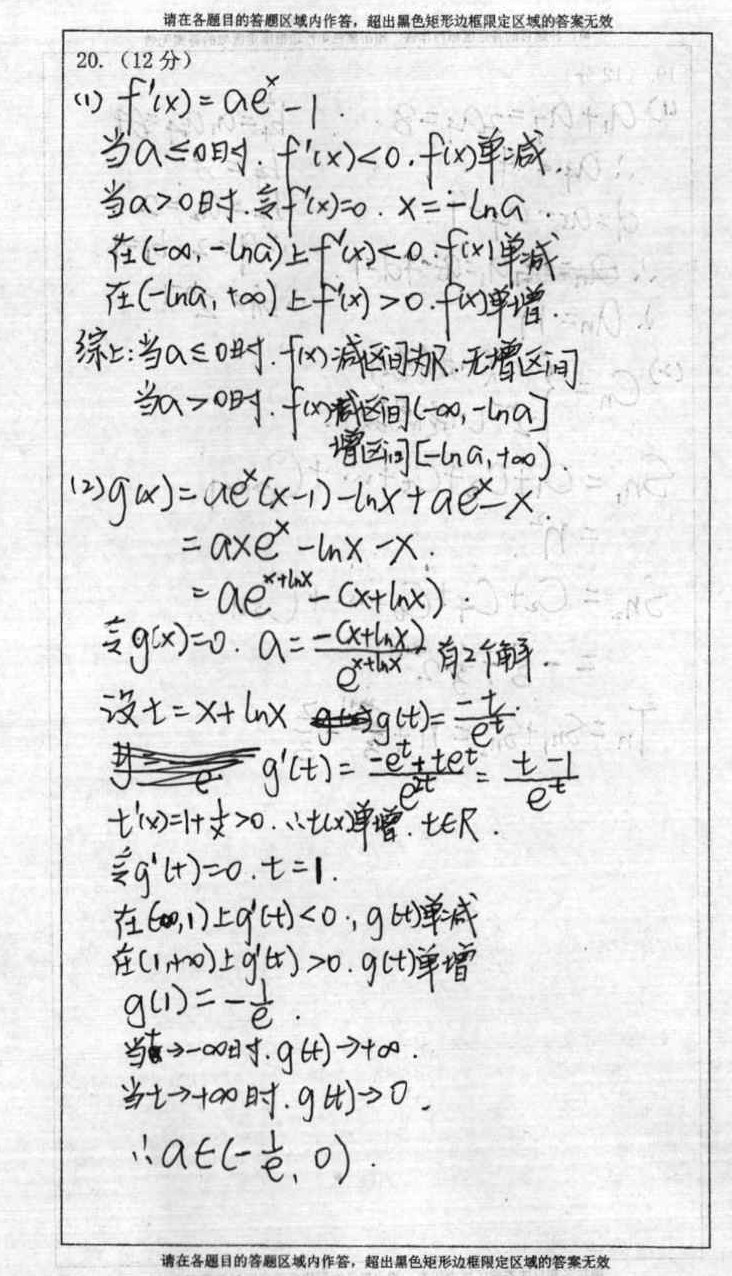 请在各题目的答题区域内作答，超出黑色矩形边框限定区域的答案无效
20.（12分）
(1) f'(x)=ae^x-1.
当a≤0时.f'(x)<0.f(x)单减.
当a>0时.令f'(x)=0. x=-lna.
在(-∞,-lna)上f'(x)<0.f(x)单减
在(-lna,+∞)上f'(x)>0.f(x)单增.
综上:当a≤0时.f(x)减区间为R.无增区间
当a>0时.f(x)减区间(-∞,-lna]
增区间[-lna,+∞).
(2)g(x)=ae^x(x-1)-lnx+ae^x-x.
=axe^x-lnx-x.
=ae^{x+lnx}-(x+lnx).
令g(x)=0. a=\frac{-(x+lnx)}{e^{x+lnx}} 有2个解.
设t=x+lnx g(t)=\frac{-t}{e^t}.
g'(t)=\frac{-e^t+te^t}{e^{2t}}=\frac{t-1}{e^t}
t'(x)=1+\frac{1}{x}>0.∴t(x)单增.t∈R.
令g'(t)=0.t=1.
在(-∞,1)上g'(t)<0.g(t)单减
在(1,+∞)上g'(t)>0.g(t)单增
g(1)=-\frac{1}{e}.
当t→-∞时.g(t)→+∞.
当t→+∞时.g(t)→0.
∴a∈(-\frac{1}{e},0).
请在各题目的答题区域内作答，超出黑色矩形边框限定区域的答案无效